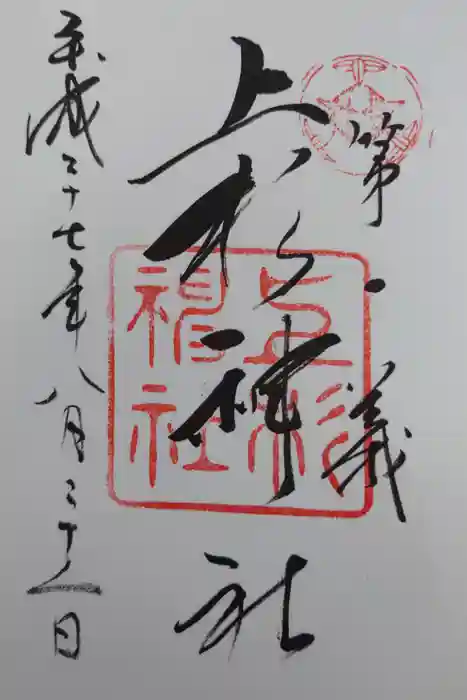 第一義
上杉神社
平成二十七年八月二十一日
上杉
神社